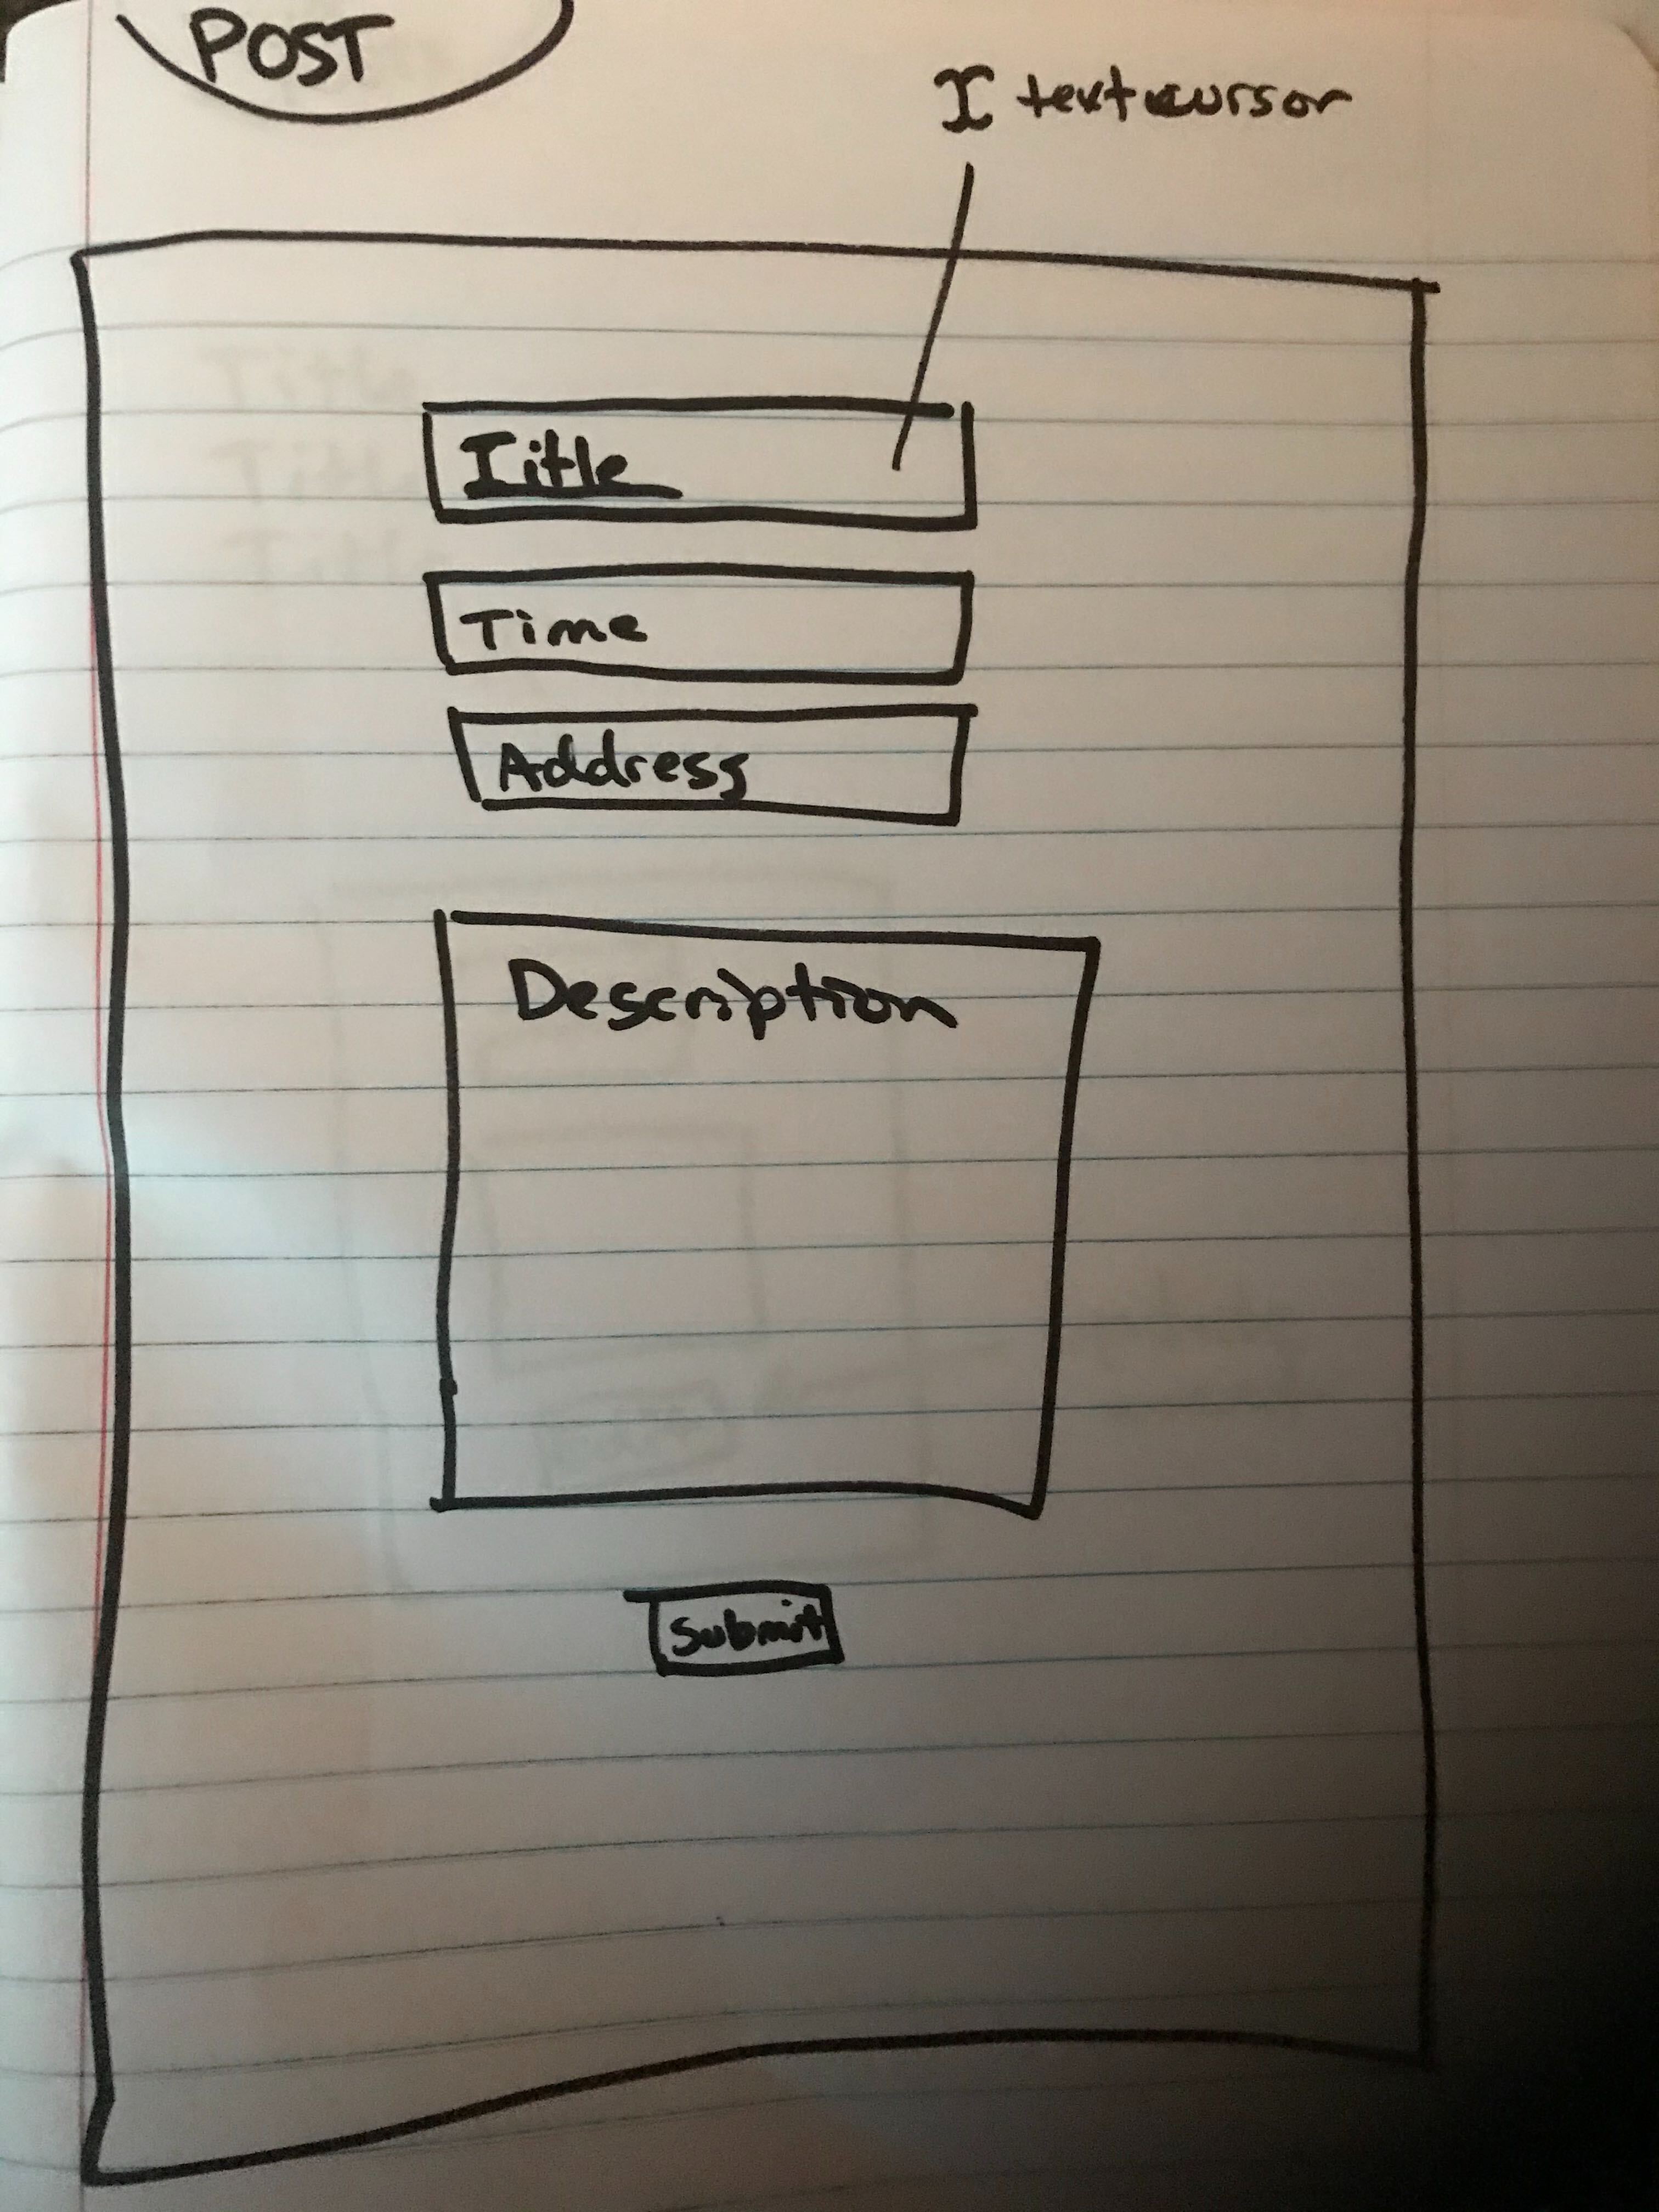 POST
I text cursor
Title
Time
Address
Description
Submit